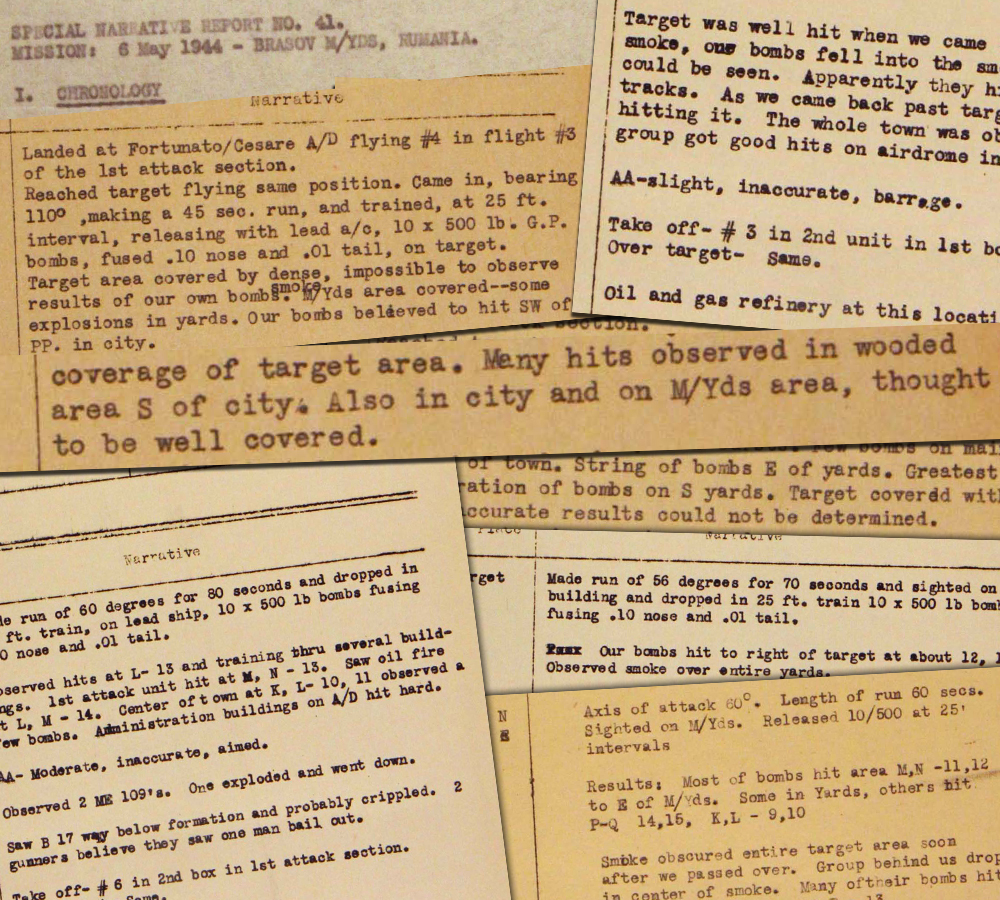 SPECIAL NARRATIVE REPORT NO. 41.
MISSION: 6 May 1944 - BRASOV M/YDS, RUMANIA.
I. CHRONOLOGY
Narrative
Landed at Fortunato/Cesare A/D flying #4 in flight #3
of the 1st attack section.
Reached target flying same position. Came in, bearing
110º ,making a 45 sec. run, and trained, at 25 ft.
interval, releasing with lead a/c, 10 x 500 lb. G.P.
bombs, fused .10 nose and .01 tail, on target.
Target area covered by dense, impossible to observe
smoke
results of our own bombs. M/Yds area covered--some
explosions in yards. Our bombs believed to hit SW of
PP. in city.
Target was well hit when we came
smoke, our bombs fell into the
could be seen. Apparently they
tracks. As we came back past
hitting it. The whole town was
group got good hits on airdrome
AA-slight, inaccurate, barrage.
Take off- # 3 in 2nd unit in 1st
Over target- Same.
Oil and gas refinery at this
section.
coverage of target area. Many hits observed in wooded
area S of city. Also in city and on M/Yds area, thought
to be well covered.
bombs on
of town. String of bombs E of yards. Greatest
of bombs on S yards. Target covered
results could not be determined.
Narrative
run of 60 degrees for 80 seconds and dropped in
ft. train, on lead ship, 10 x 500 lb bombs fusing
nose and .01 tail.
hits at L- 13 and training thru several build-
1st attack unit hit at M, N - 13. Saw oil fire
L, M - 14. Center of town at K, L- 10, 11 observed a
few bombs. Administration buildings on A/D hit hard.
AA- Moderate, inaccurate, aimed.
Observed 2 ME 109's. One exploded and went down.
Saw B 17 way below formation and probably crippled. 2
gunners believe they saw one man bail out.
Take off- # 6 in 2nd box in 1st attack section.
Same.
Place
Narrative
Made run of 56 degrees for 70 seconds and sighted on
building and dropped in 25 ft. train 10 x 500 lb
fusing .10 nose and .01 tail.
Our bombs hit to right of target at about 12,
Observed smoke over entire yards.
N
E
Axis of attack 60°. Length of run 60 secs.
Sighted on M/Yds. Released 10/500 at 25'
intervals
Results: Most of bombs hit area M,N -11,12
to E of M/Yds. Some in Yards, others hit
P-Q 14,15, K,L - 9,10
Smoke obscured entire target area soon
after we passed over. Group behind us
in center of smoke. Many oftheir bombs